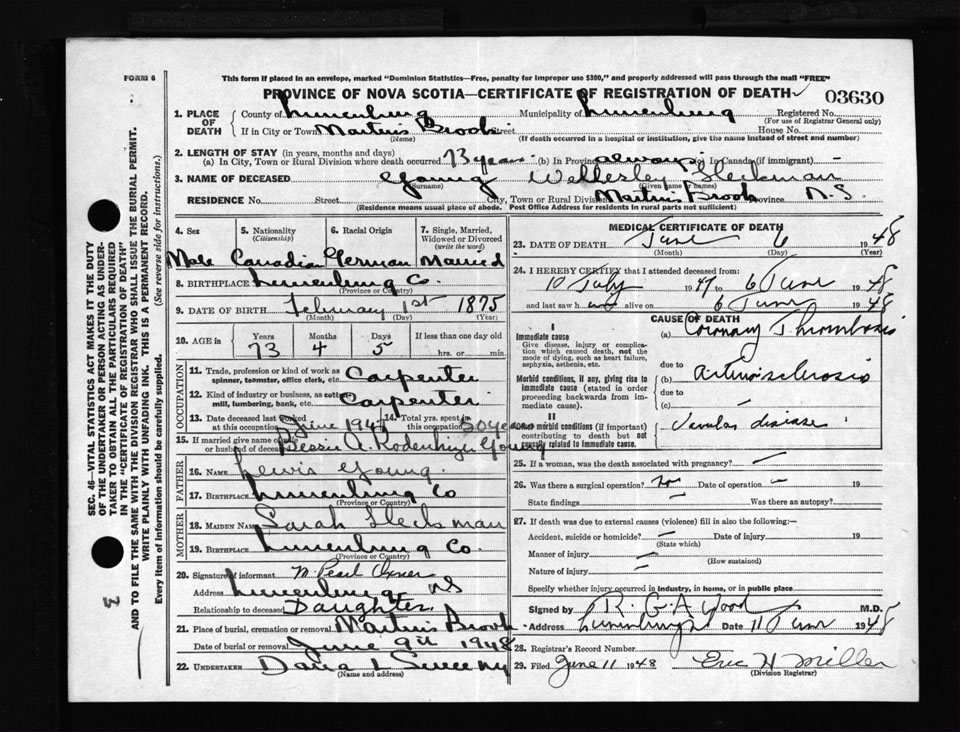 FORM 6
This form if placed in an envelope, marked "Dominion Statistics—Free, penalty for improper use $300," and properly addressed will pass through the mail "FREE"
PROVINCE OF NOVA SCOTIA—CERTIFICATE OF REGISTRATION OF DEATH
03630
1. PLACE OF DEATH
County of Lunenburg Municipality of Lunenburg Registered No.
(For use of Registrar General only)
If in City or Town Martins Brook Street House No.
(Name) (If death occurred in a hospital or institution, give the name instead of street and number)
2. LENGTH OF STAY (in years, months and days)
(a) In City, Town or Rural Division where death occurred 73 years (b) In Province always (c) In Canada (if immigrant)
3. NAME OF DECEASED Young Wellesley Heckman
(Surname) (Given name or names)
RESIDENCE No. Street City, Town or Rural Division Martins Brook N.S.
(Residence means usual place of abode. Post Office Address for residents in rural parts not sufficient)
4. Sex 5. Nationality (Citizenship) 6. Racial Origin 7. Single, Married, Widowed or Divorced (write the word)
Male Canadian German Married
8. BIRTHPLACE Lunenburg Co.
(Province or Country)
9. DATE OF BIRTH February 1st 1875
(Month) (Day) (Year)
10. AGE in Years Months Days If less than one day
73 4 5 hrs. or min.
OCCUPATION
11. Trade, profession or kind of work as spinner, teamster, office clerk, etc. Carpenter
12. Kind of industry or business, as cotton mill, lumbering, bank, etc. Carpenter
13. Date deceased last worked at this occupation June 1947 14. Total yrs. spent in this occupation 50 years
15. If married give name of wife or husband of deceased Bessie A. Rodenhizer Young
FATHER
16. NAME Lewis Young
17. BIRTHPLACE Lunenburg Co
(Province or Country)
MOTHER
18. MAIDEN NAME Sarah Heckman
19. BIRTHPLACE Lunenburg Co.
(Province or Country)
20. Signature of informant M. Pearl Oxner
Address Lunenburg NS
Relationship to deceased Daughter
21. Place of burial, cremation or removal Martins Brook
Date of burial or removal June 9th 1948
22. UNDERTAKER Dana L Sweeny
(Name and address)
MEDICAL CERTIFICATE OF DEATH
23. DATE OF DEATH June 6 1948
(Month) (Day) (Year)
24. I HEREBY CERTIFY that I attended deceased from:
10 July 1947 to 6 June 1948
and last saw h alive on 6 June 1948
CAUSE OF DEATH
I
Immediate cause
Give disease, injury or complication which caused death, not the mode of dying, such as heart failure, asphyxia, asthenia, etc.
(a) Coronary Thrombosis
due to
Morbid conditions, if any, giving rise to immediate cause (stated in order proceeding backwards from immediate cause).
(b) Arteriosclerosis
due to
(c) —
II
Other morbid conditions (if important) contributing to death but not causally related to immediate cause.
disease
25. If a woman, was the death associated with pregnancy? —
26. Was there a surgical operation? no Date of operation — 19
State findings — Was there an autopsy?
27. If death was due to external causes (violence) fill in also the following:—
Accident, suicide or homicide? — Date of injury 19
(State which)
Manner of injury —
(How sustained)
Nature of injury —
Specify whether injury occurred in industry, in home, or in public place
Signed by R. G. A. Wood M.D.
Address Lunenburg Date 11 June 1948
28. Registrar's Record Number
29. Filed June 11 1948 Eric H Miller
(Division Registrar)
SEC. 46—VITAL STATISTICS ACT MAKES IT THE DUTY
OF THE UNDERTAKER OR PERSON ACTING AS UNDERTAKER TO OBTAIN ALL THE PARTICULARS REQUIRED
IN THE "CERTIFICATE OF REGISTRATION OF DEATH"
AND TO FILE THE SAME WITH THE DIVISION REGISTRAR WHO SHALL ISSUE THE BURIAL PERMIT.
WRITE PLAINLY WITH UNFADING INK. THIS IS A PERMANENT RECORD.
Every item of information should be carefully supplied. (See reverse side for instructions.)
3